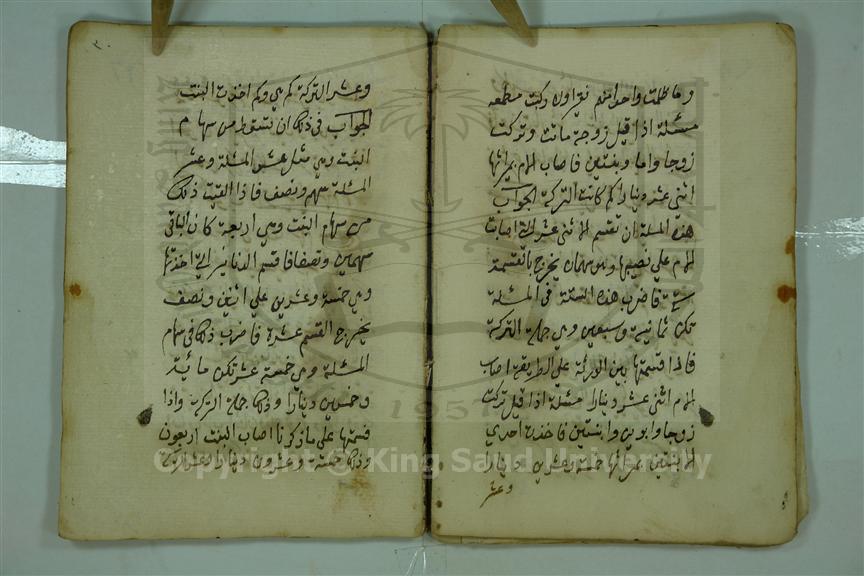 وما ظلمت واحدا منهم نقيرا ولا
مسئلة اذا قيل زوجة ماتت وتركت
زوجا واما وبنتين فاصاب الام بميراثها
اثنى عشر دينارا كم كانت التركة الجواب
هذه المسئلة ان تقسم الاثنى عشر التى اصابت
الام على نصيبها وهو سهمان يخرج بالقسمة
ستة فاضرب هذه الستة فى المسئلة
تكن ثمانية وسبعين وهى جملة التركة
فاذا قسمتها بين الورثة على الطريقة اصاب
الام اثنى عشر دينارا مسئلة اذا قيل تركت
زوجا وابوين وابنتين فاخذت احدى
الابنتين بميراثها خمسة وعشرين دينارا
وعشر
وعشر التركة كم هى وكم اخذت البنت
الجواب فى ذلك ان تسقط من سهام
البنت وهى مثل عشر المسئلة وعشر
المسئلة سهم ونصف فاذا القيت ذلك
من سهام البنت وهى اربعة كان الباقى
سهمين ونصفا فاقسم الدنانير التى اخذتها
وهى خمسة وعشرين على اثنين ونصف
يخرج القسم عشرة فاضرب ذلك فى سهام
المسئلة وهى خمسة عشر تكن مائة
وخمسين دينارا وذلك جملة التركة واذا
قسمتها على ما ذكرنا اصاب البنت اربعون
وذلك خمسة وعشرون دينارا وعشر التركة
Copyright © King Saud University
1957